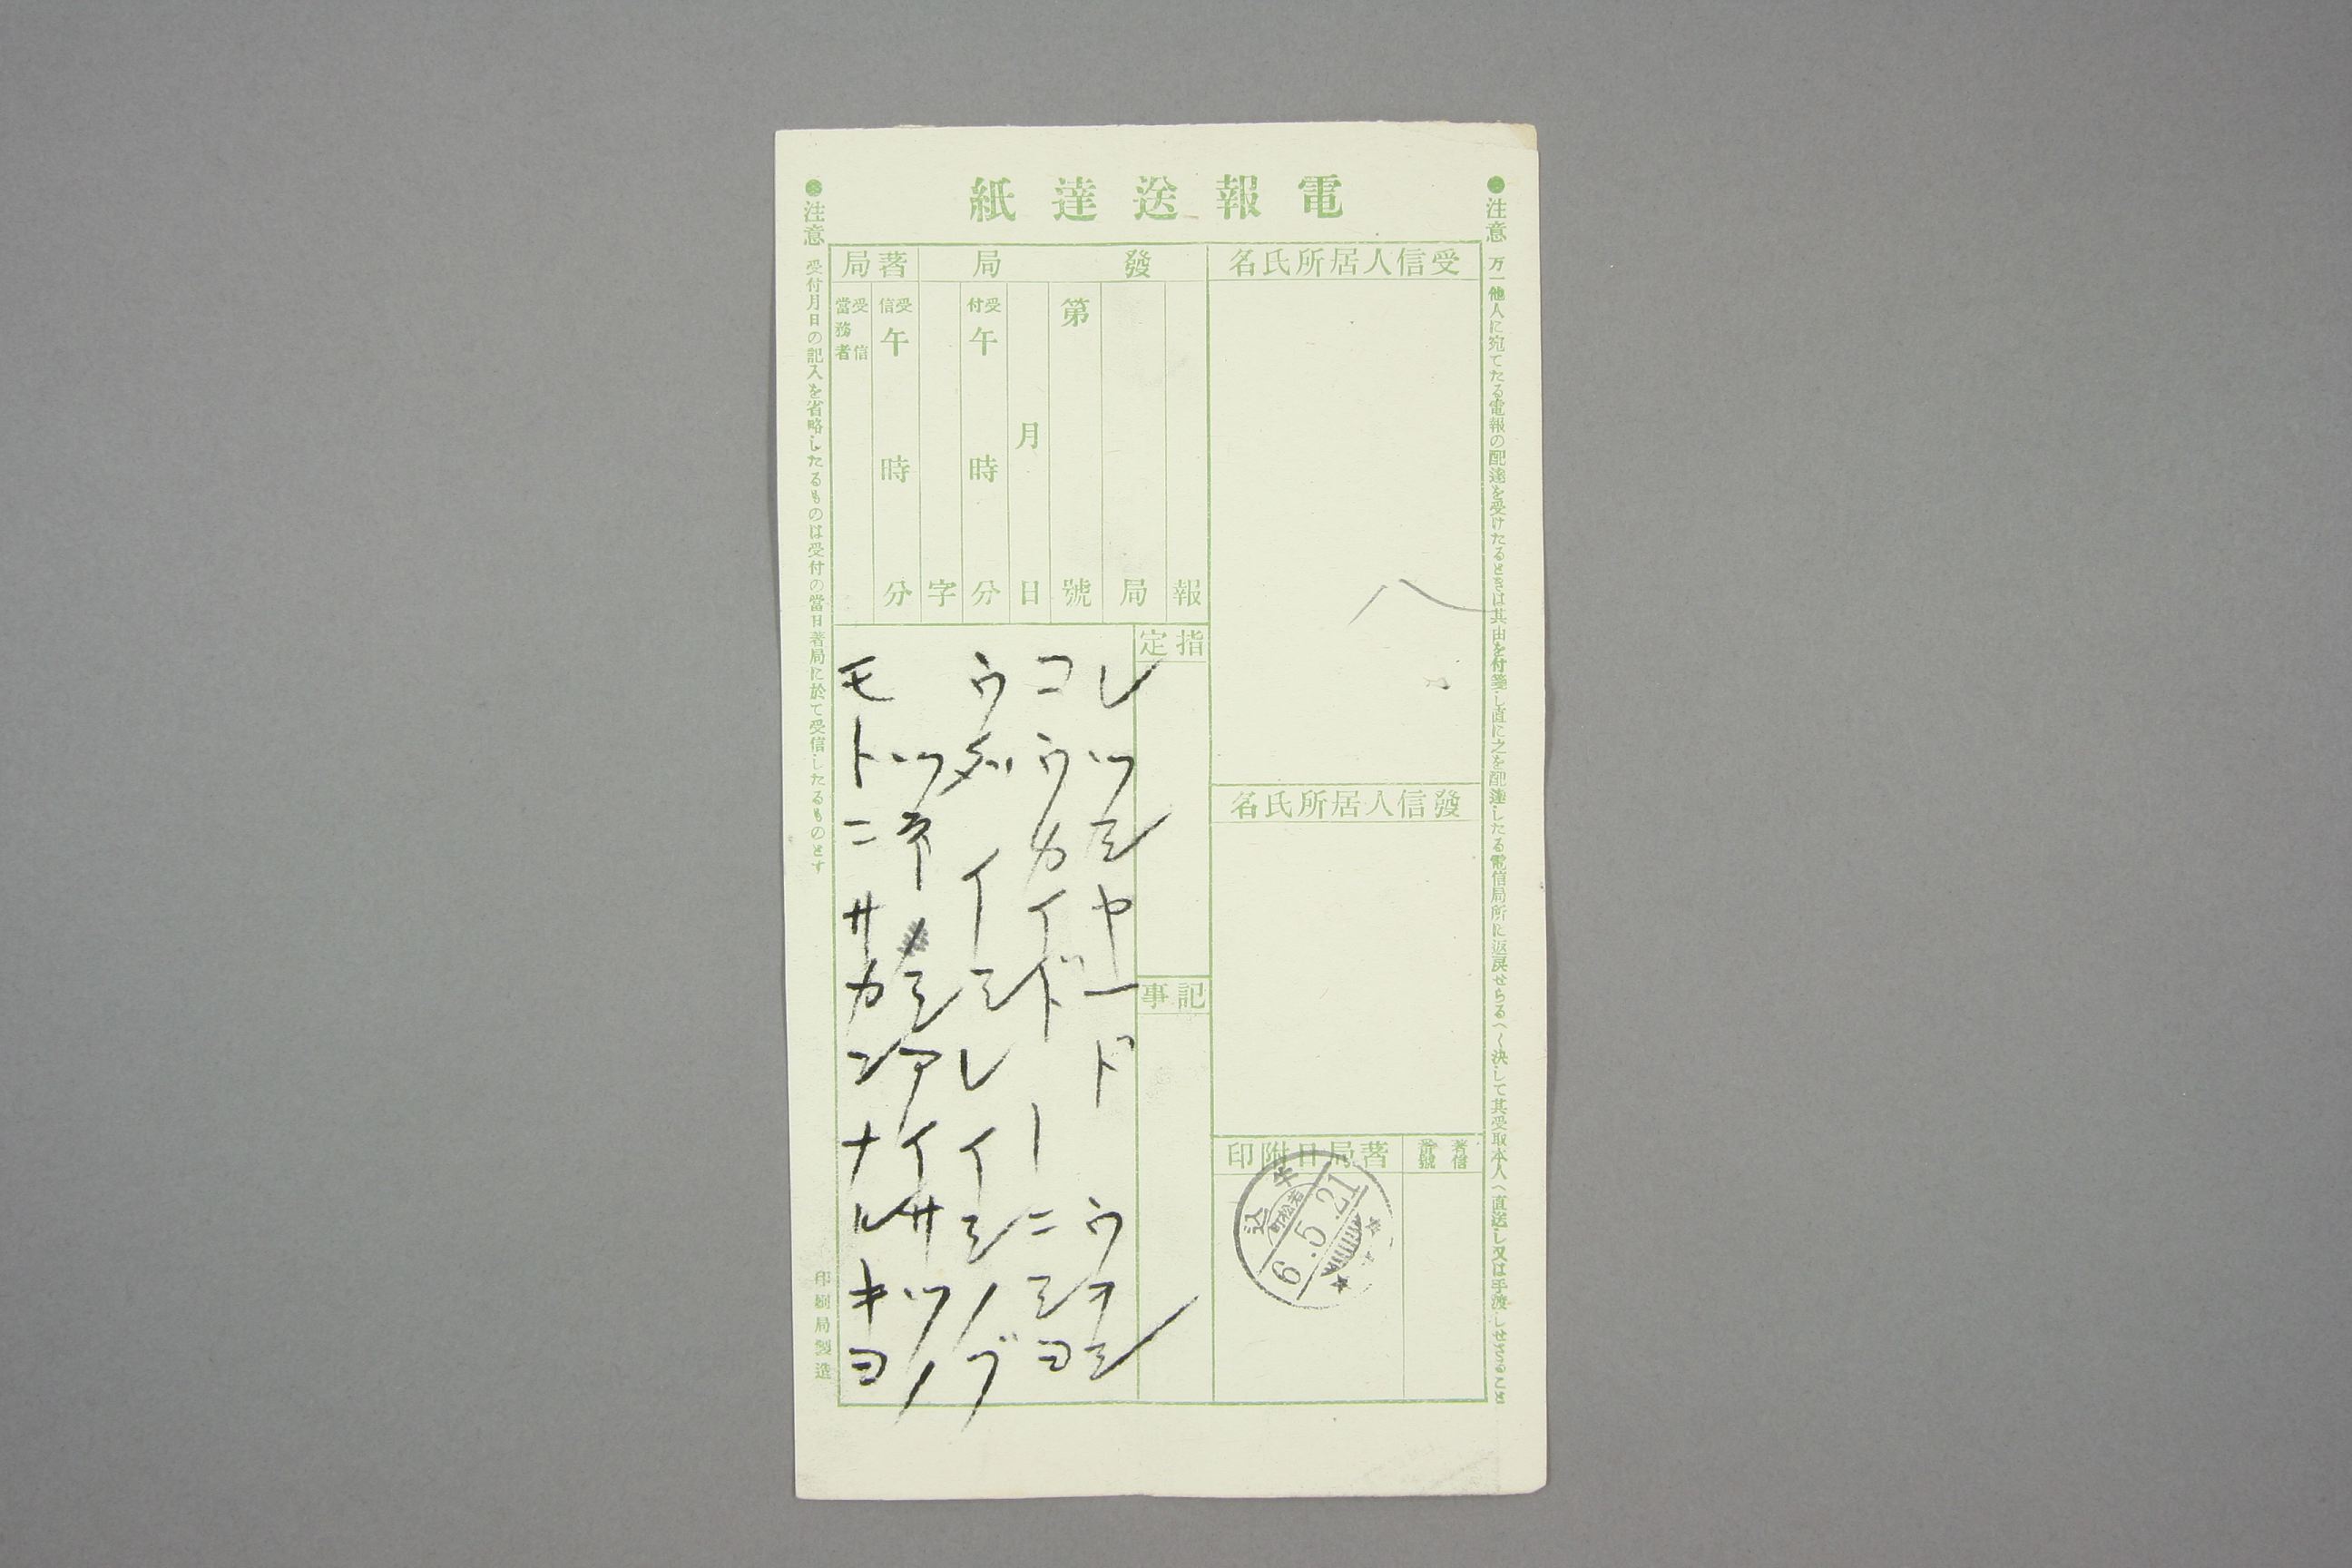 電報送達紙
●注意 万一他人に宛てたる電報の配達を受けたるときは其由を付箋し直に之を配達したる電信局所に返戻せらるへく決して其受取本人へ直送し又は手渡しせさること
受信人居所氏名
發信人居所氏名
著信番號
著局日附印
牛込
若松町
6.5.21
發局
報
局
第 號
月 日
受付午 時 分
字
著局
受信午 時 分
受信當務者
指定
記事
レツシヤード ウオシ
コウカイドーニシヨ
ウダイシレイシノブ
ツネシアイサツノ
モトニサカンナルキヨ
●注意 受付月日の記入を省略したるものは受付の當日著局に於て受信したるものとす
印刷局製造